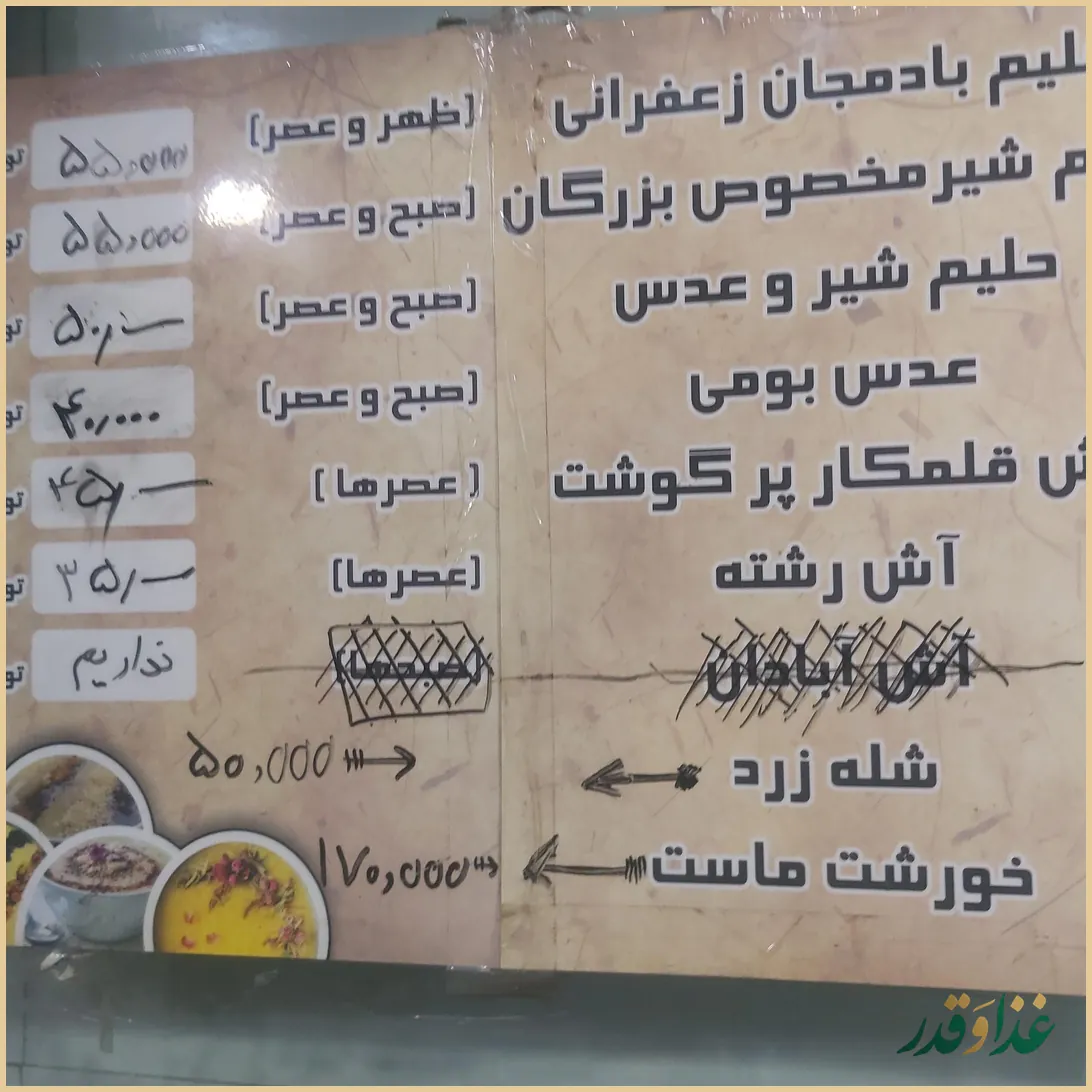 حلیم بادمجان زعفرانی [ظهر و عصر] ۵۵,۰۰۰ تو
م شیر مخصوص بزرگان [صبح و عصر] ۵۵,۰۰۰ تو
حلیم شیر و عدس [صبح و عصر] ۵۰,— تو
عدس بومی [صبح و عصر] ۴۰,۰۰۰ تو
ش قلمکار پر گوشت [عصرها] ۴۵,— تو
آش رشته [عصرها] ۳۵,— تو
آش آبادان [صبحها] نداریم تو
شله زرد ۵۰,۰۰۰
خورشت ماست ۱۷۰,۰۰۰
غذا و قدر